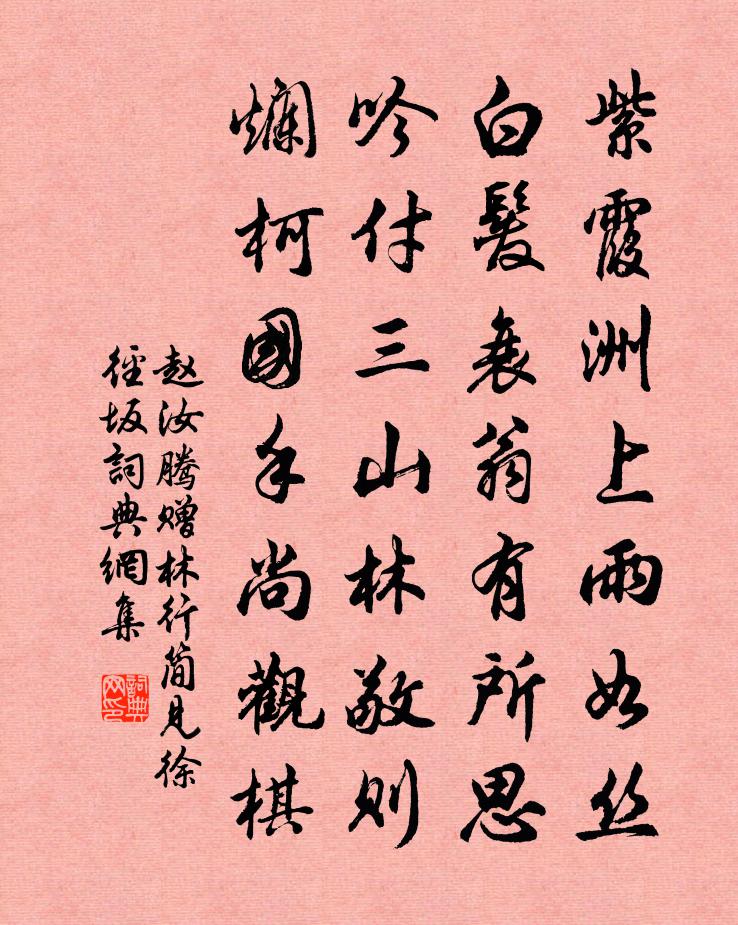 紫霞洲上雨如丝
白髮衰翁有所思
吟付三山林敬则
爛柯國手尚觀棋
赵汝腾赠林行简见徐
徑坂詞典網集
詞典
网印